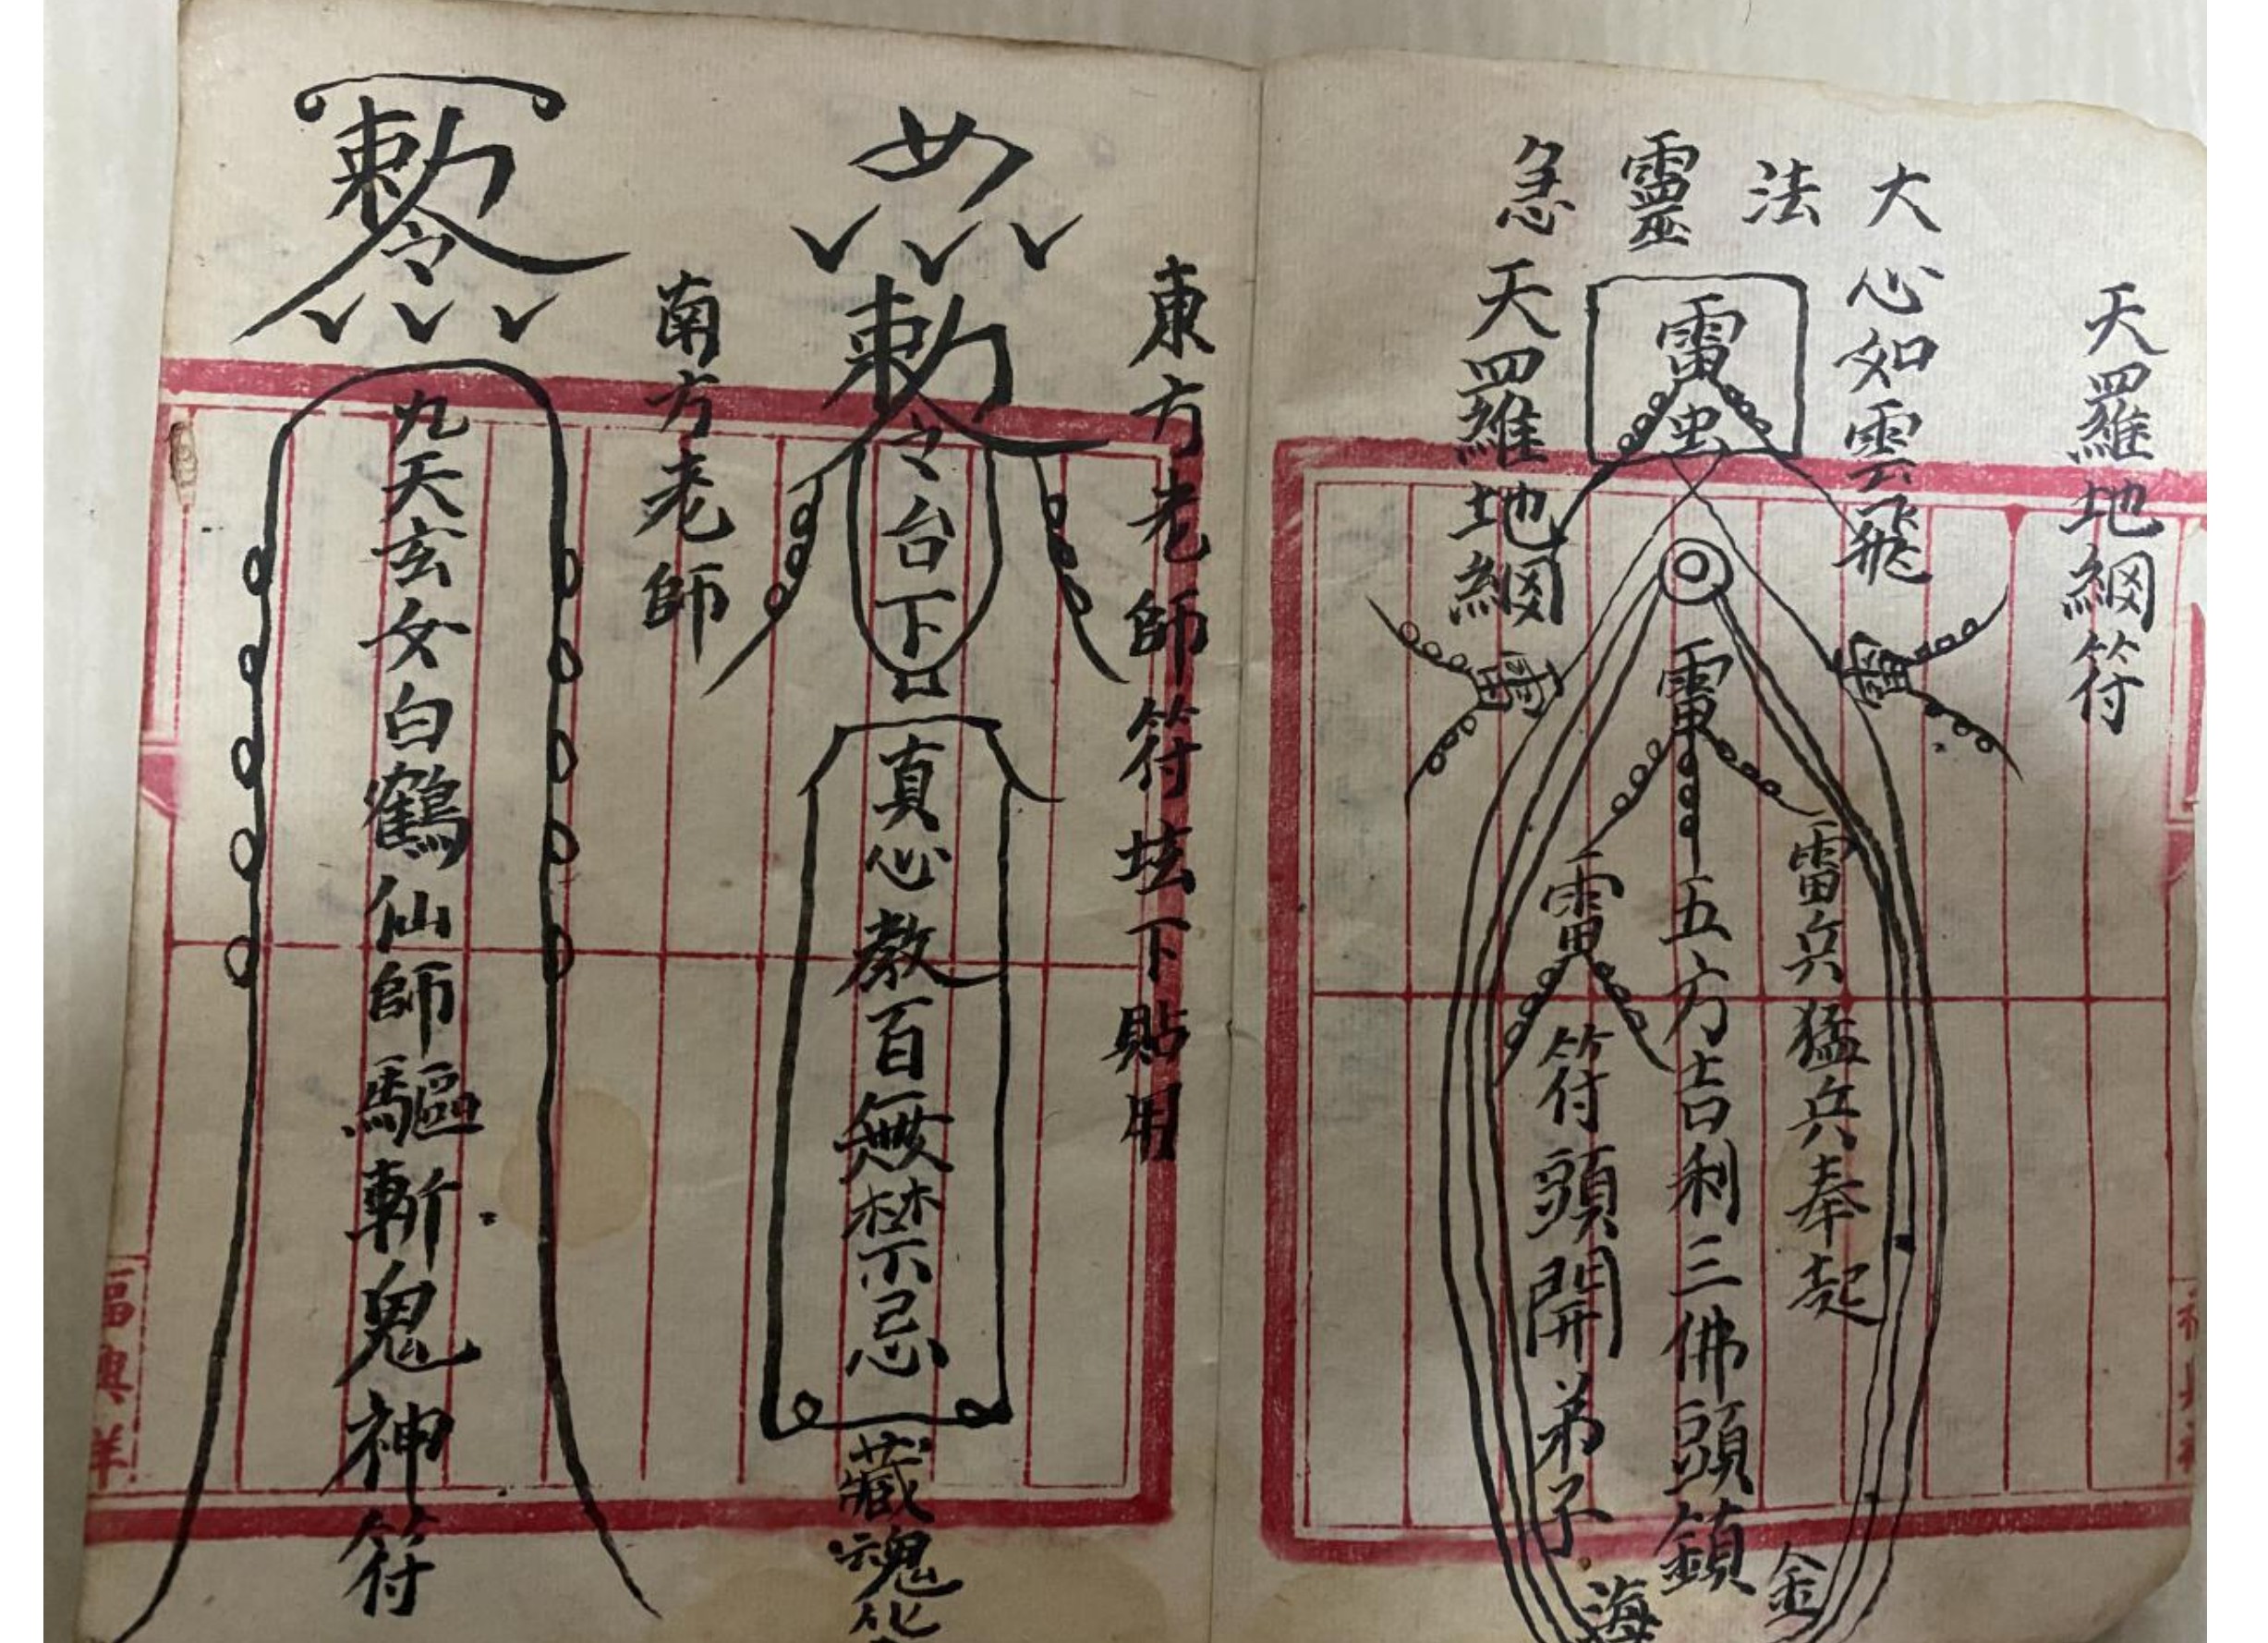 天羅地網符
大法靈急
心如雲飛
雷
天羅地網
雷
雷
雷兵猛兵奉起
五方吉利三佛頭鎖
符頭開弟子
金
海
東方老師符坛下貼用
敕令台下
真心教百無禁忌
藏魂化
南方老師
敕令
九天玄女白鶴仙師驅斬鬼神符
福興祥